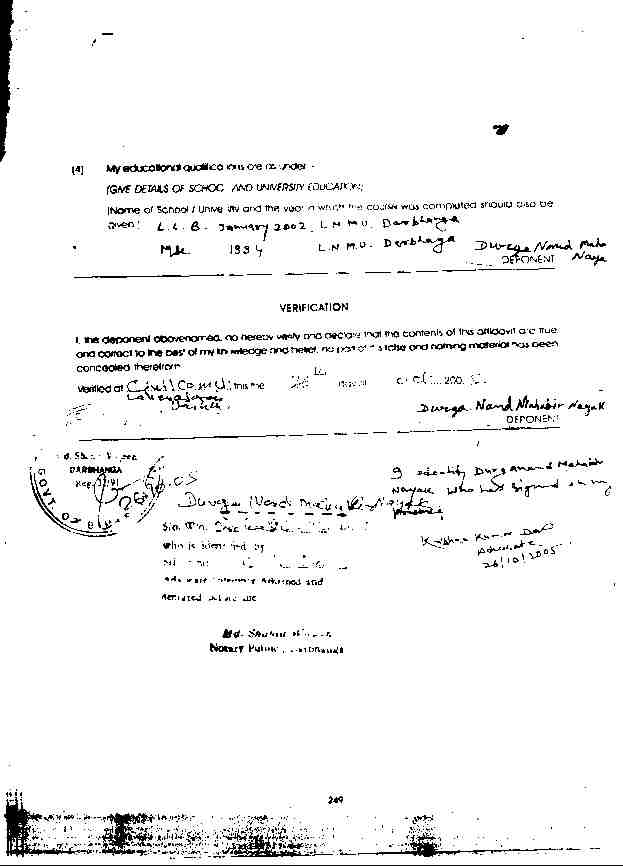 (4) My educational qualifications are as under :-
(GIVE DETAILS OF SCHOOL AND UNIVERSITY EDUCATION)
(Name of School / University and the year in which the course was completed should also be
given) L.L.B. January 2002, L.N.M.U. Darbhanga
Msc 1994 L.N.M.U. Darbhaga Durga Nand Maha
Naya
DEPONENT
VERIFICATION
I, the deponent abovenamed, do hereby verify and declare that the contents of this affidavit are true
and correct to the best of my knowledge and belief, no part of it is false and nothing material has been
concealed therefrom
Verified at Civil Court this the 26 day of Oct 200
Laheriasarai
Durga Nand Mahabir Nayak
DEPONENT
DARBHANGA
GOVT. OF
I identify Durganand Mahabir
Nayak who has signed in my
Durga Nand Mahabir Nayak
presence
S/o. W/o.
who is identified by
Krishna Kumar Das
Advocate
26/10/2005
Advocate
declared before me
Md.
Notary Public, Darbhanga
249